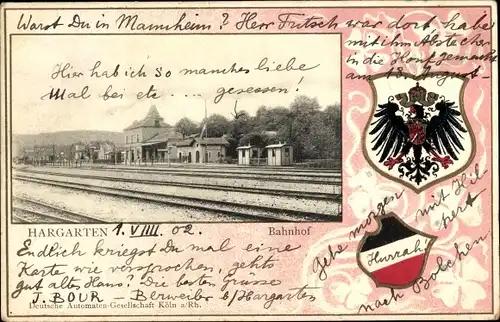 Warst Du in Mannheim? Herr Fritsch war dort, habe
mit ihm Abstecher
in die Honf gemacht
am 18. August
Hier hab ich so manches liebe
Mal bei etc .... gesessen!
HARGARTEN 1. VIII. 02. Bahnhof
Endlich kriegst Du mal eine
Karte wie versprochen, gehts
gut altes Haus? Die besten Grüsse
J. BOUR - Berweiler b/Hargarten
Deutsche Automaten-Gesellschaft Köln a/Rh.
Gehe morgen
mit Hil-
pert
nach Bolchen
Hurrah!